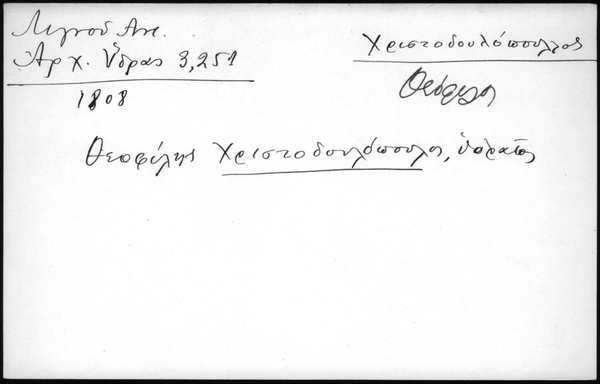 Λιγνοῦ Ἀντ.
Ἀρχ. Ὕδρας 3,251
1808
Χριστοδουλόπουλλος
Θεόφιλος
Θεοφίλης Χριστοδουλόπουλος, ὑδραῖος